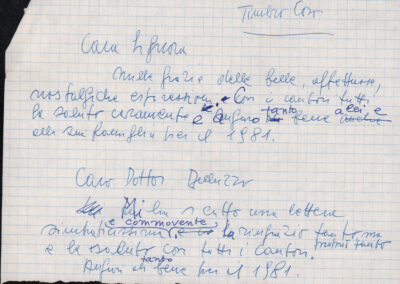 Timbro Coro
Cara Signora
mille grazie delle belle, affettuose,
nostalgiche espressioni. Con i cantori tutti
la saluto caramente e auguro tanto bene a lei e
alla sua famiglia per il 1981.
Caro Dottor Belluzzo
Mi ha scritto una lettera
simpaticissima e commovente. La ringrazio tanto
e la saluto con tutti i cantori.
Auguri di tanto bene per il 1981.